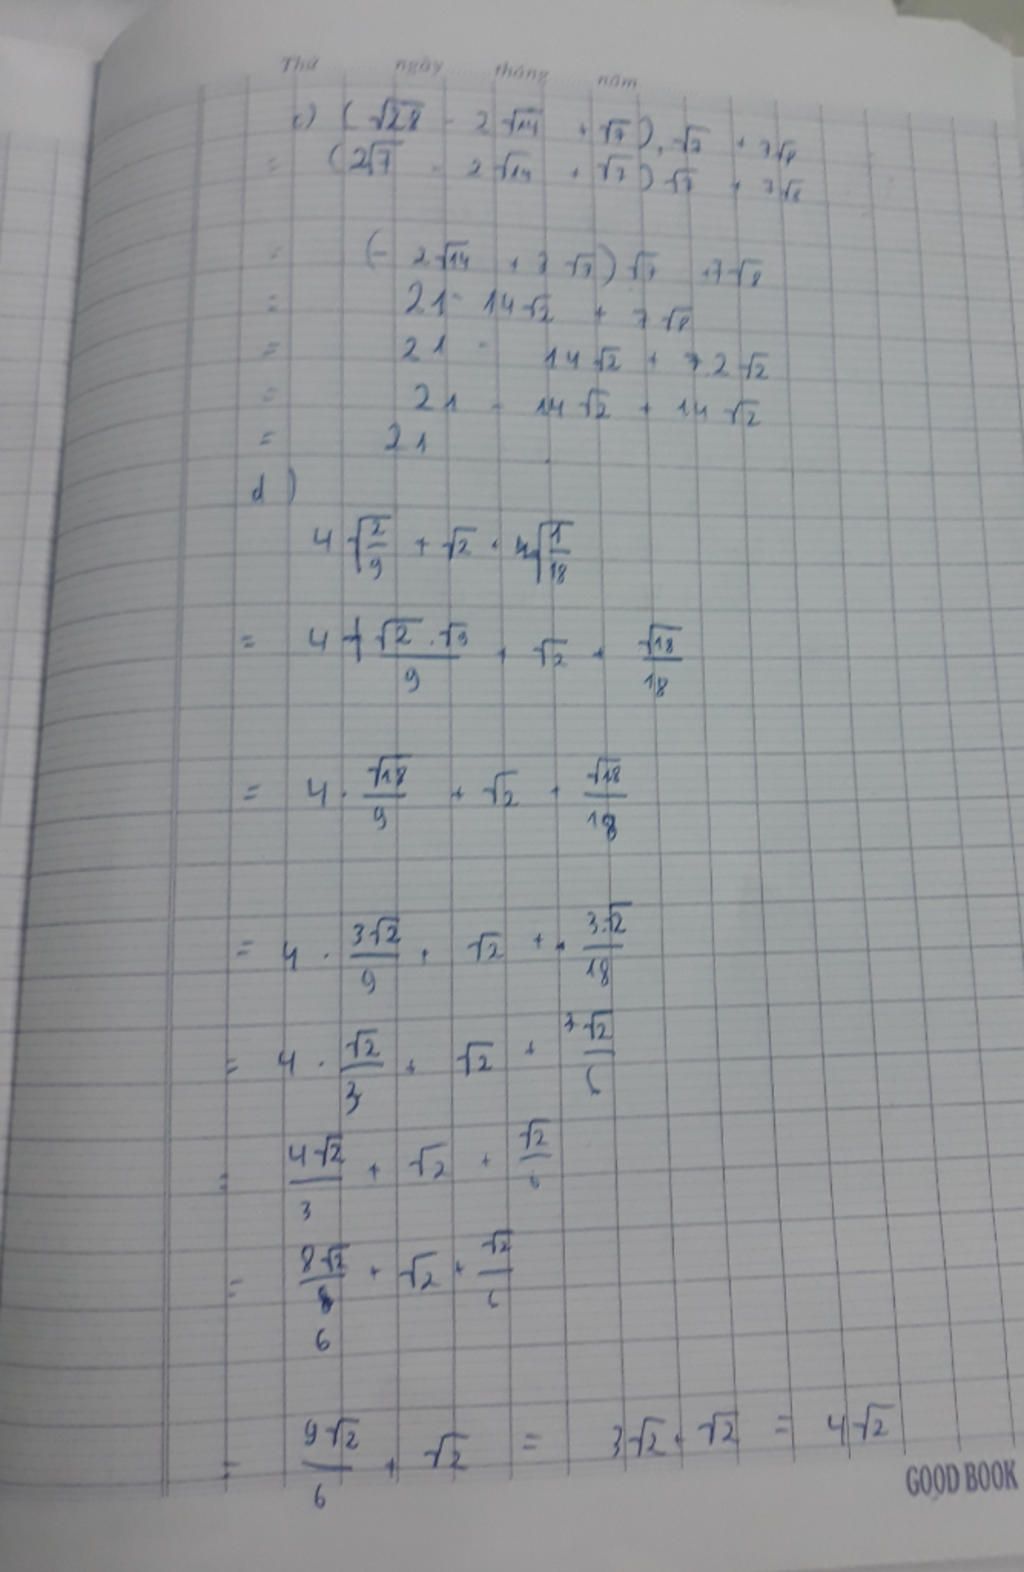 Thứ ngày tháng năm
c) (√28 - 2√14 + √7).√7 + 7√8
= (2√7 - 2√14 + √7)√7 + 7√8
= (- 2√14 + 3√7)√7 + 7√8
= 21 - 14√2 + 7√8
= 21 - 14√2 + 7.2√2
= 21 - 14√2 + 14√2
= 21
d)
4√(2/9) + √2 + √(1/18)
= 4 (√2.√9)/9 + √2 + √18/18
= 4 . √18/9 + √2 + √18/18
= 4 . 3√2/9 + √2 + 3.√2/18
= 4 . √2/3 + √2 + √2/6
= 4√2/3 + √2 + √2/6
= 8√2/6 + √2 + √2/6
= 9√2/6 + √2 = 3√2 + √2 = 4√2
GOOD BOOK